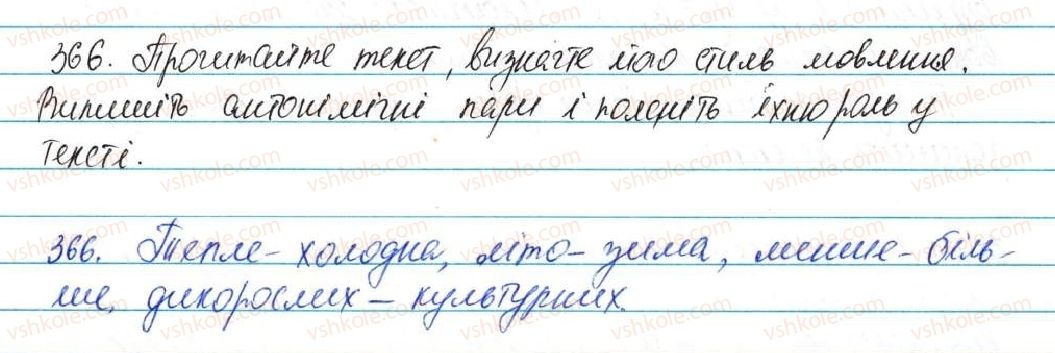 366. Прочитайте текст, визначте його стиль мовлення.
Випишіть антонімічні пари і поясніть їхню роль у
тексті.
366. Тепле – холодна, літо – зима, менше – біль-
ше, дикорослих – культурних.